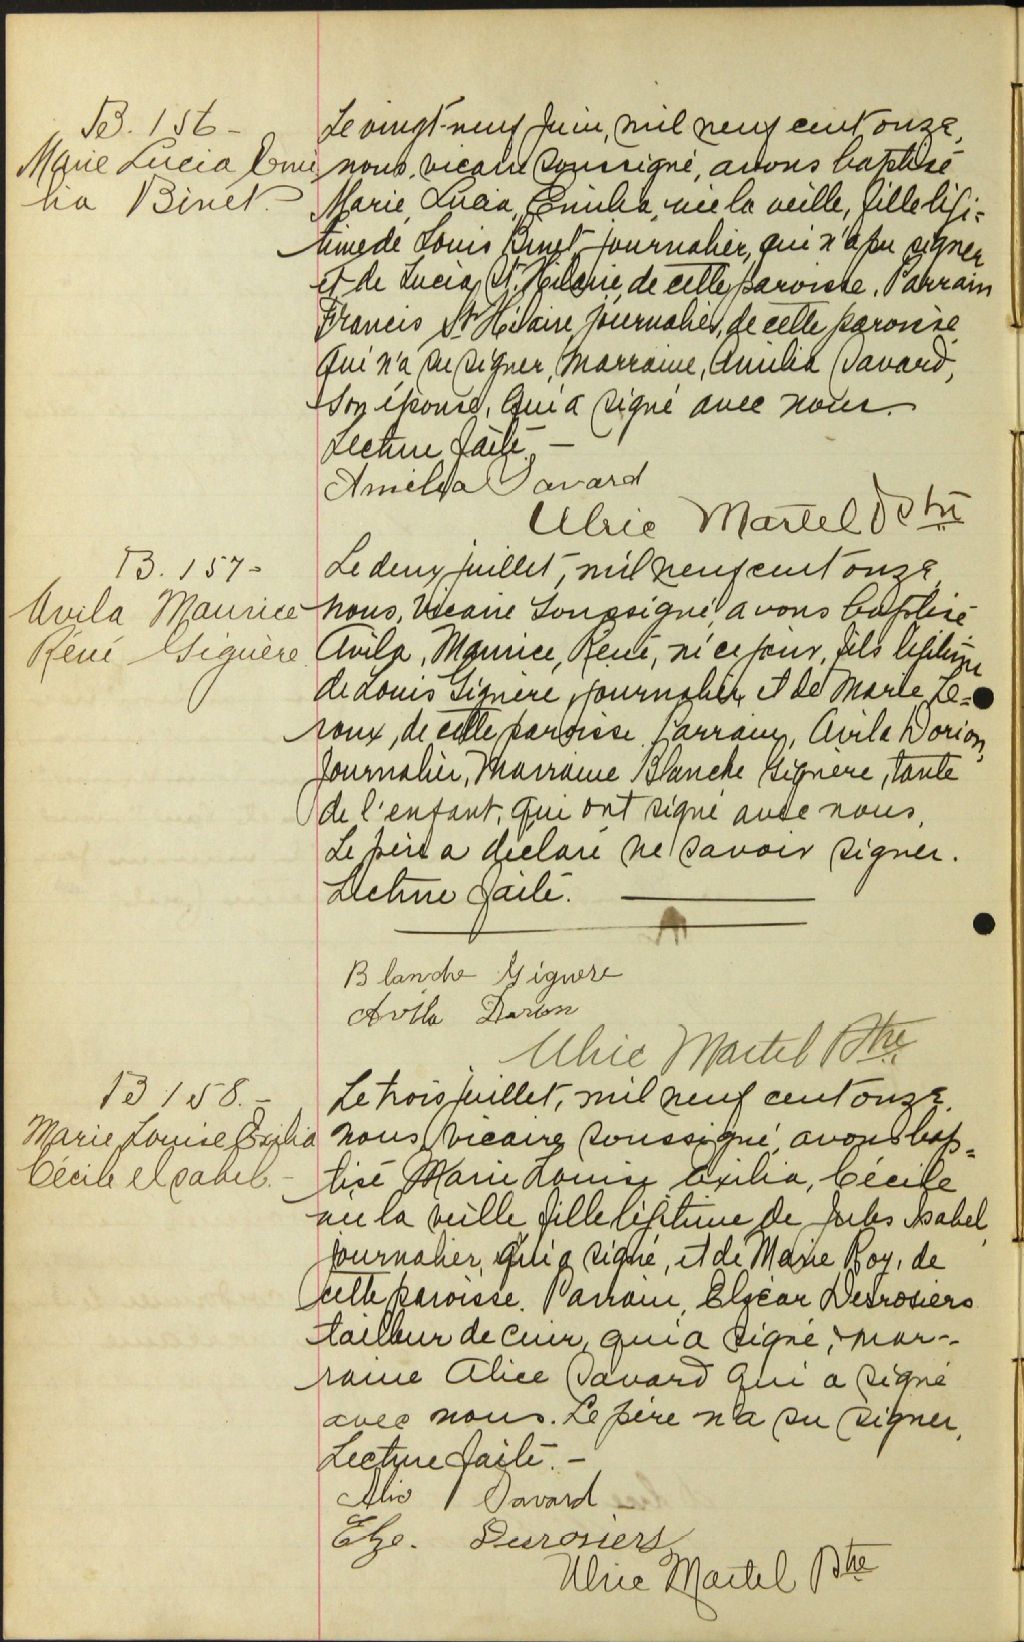 B. 156 -
Marie Lucia Emi
lia Binet. -
Le vingt-neuf juin, mil neuf cent onze,
nous, vicaire soussigné, avons baptisé
Marie, Lucia, Emilia, née la veille, fille légi-
time de Louis Binet, journalier, qui n'a pu signer
et de Lucia St. Hilaire de cette paroisse. Parrain
Francis St Hilaire, journalier, de cette paroisse
qui n'a su signer, marraine, Amilia Savard,
son épouse, qui a signé avec nous. -
Lecture faite. -
Amelia Savard
Ulric Martel Ptre
B. 157 -
Avila Maurice
Réné Giguère
Le deux juillet, mil neuf cent onze,
nous, vicaire soussigné, avons baptisé
Avila, Maurice, René, né ce jour, fils légitime
de Louis Giguère, journalier et de Marie Le-
roux, de cette paroisse. Parrain, Avila Dorion,
journalier, Marraine Blanche Giguère, tante
de l'enfant, qui ont signé avec nous.
Le père a déclaré ne savoir signer.
Lecture faite.
Blanche Giguere
Avila Dorion
Ulric Martel Ptre
B 158. -
Marie Louise Exilia
Cécile Isabel. -
Le trois juillet, mil neuf cent onze,
nous, vicaire soussigné, avons bap-
tisé Marie Louise Exilia, Cécile
née la veille fille légitime de Jules Isabel,
journalier, qui a signé, et de Marie Roy, de
cette paroisse. Parrain, Elzéar Desrosiers
tailleur de cuir, qui a signé, mar-
raine Alice Savard qui a signé
avec nous. Le père n'a su signer.
Lecture faite. -
Alic Savard
Elze. Desrosiers
Ulric Martel Ptre